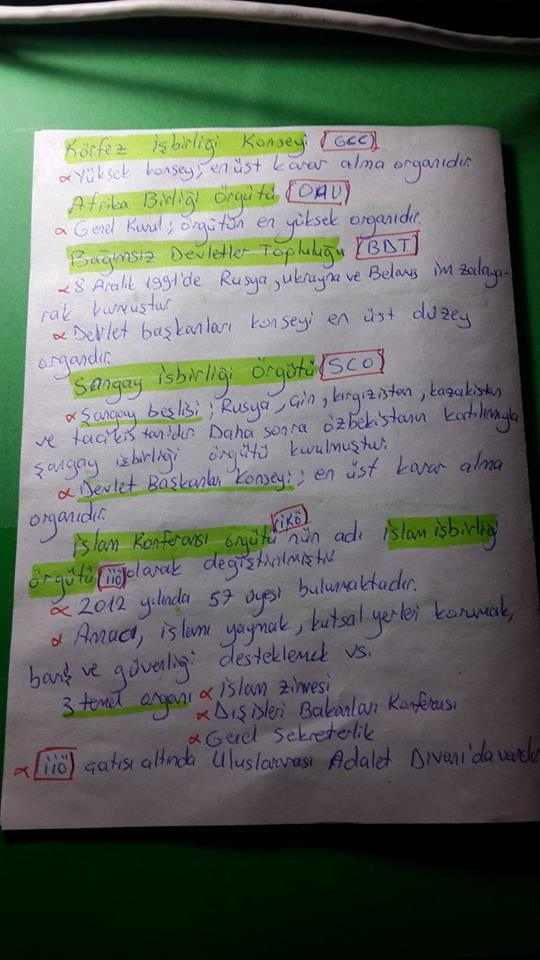 Körfez işbirliği Konseyi GCC
∝ Yüksek konsey; en üst karar alma organıdır.
Afrika Birliği Örgütü OAU
∝ Genel Kurul; örgütün en yüksek organıdır.
Bağımsız Devletler Topluluğu BDT
∝ 8 Aralık 1991'de Rusya, ukrayna ve Belarus imzalaya-
rak kurmuştur
∝ Devlet başkanları konseyi en üst düzey
organdır.
Şangay işbirliği örgütü SCO
∝ Şangay beşlisi; Rusya, Çin, kırgızistan, kazakistan
ve tacikistan'dır. Daha sonra özbekistanın katılımıyla
şangay işbirliği örgütü kurulmuştur.
∝ Devlet Başkanları Konseyi; en üst karar alma
organıdır.
islam Konferansı örgütü iKÖ nün adı islam işbirliği
örgütü iiö olarak değiştirilmiştir
∝ 2012 yılında 57 üyesi bulunmaktadır.
∝ Amacı, islamı yaymak, kutsal yerleri korumak,
barış ve güvenliği desteklemek vs.
3 temel organı ∝ islam zirvesi
∝ Dışişleri Bakanları Konferansı
∝ Genel Sekreterlik
∝ iiö çatısı altında Uluslararası Adalet Divanı'da vardır